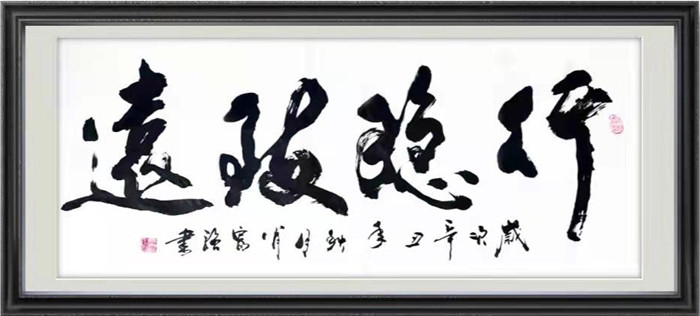 行稳致遠
歲次辛丑年秋月肖富強書